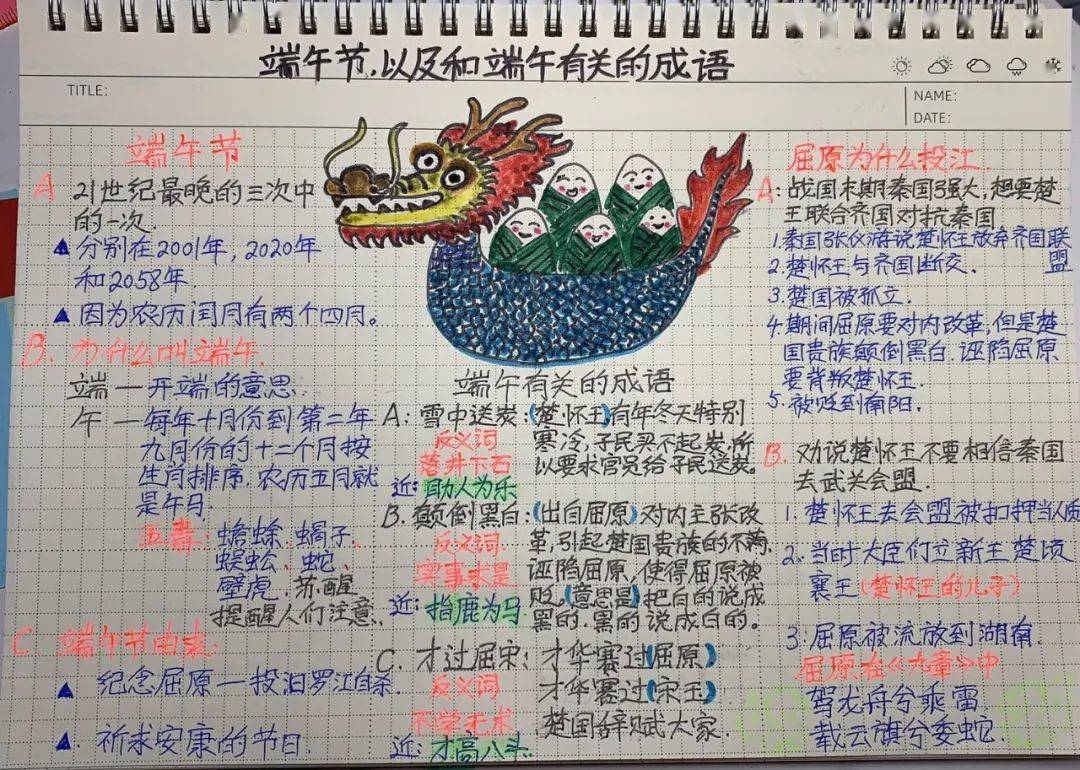 端午节,以及和端午有关的成语
TITLE:
NAME:
DATE:
端午节
A 21世纪最晚的三次中
的一次.
▲分别在2001年,2020年
和2058年.
▲因为农历闰月有两个四月。
B. 为什么叫端午.
端一开端的意思.
午一每年十月份到第二年
九月份的十二个月按
生肖排序.农历五月就
是午马.
五毒:蟾蜍、蝎子、
蜈蚣、蛇、
壁虎.苏醒
提醒人们注意.
C 端午节由来:
▲纪念屈原一投汨罗江自杀.
▲祈求安康的节日.
端午有关的成语
A:雪中送炭:(楚怀王)有年冬天特别
寒冷,子民买不起炭,所
以要求官员给子民送炭。
反义词
落井下石
近:助人为乐
B.颠倒黑白:(出自屈原)对内主张改
革,引起楚国贵族的不满,
诬陷屈原,使得屈原被
贬。(意思是)把白的说成
黑的.黑的说成白的。
反义词
实事求是
近:指鹿为马
C.才过屈宋:才华赛过(屈原)
才华赛过(宋王)
楚国辞赋大家.
反义词
不学无术
近:才高八斗
屈原为什么投江.
A:战国末期秦国强大,想要楚
王联合齐国对抗秦国
1.秦国张仪游说楚怀王放弃齐国联
盟
2.楚怀王与齐国断交.
3.楚国被孤立.
4.期间屈原要对内改革,但是楚
国贵族颠倒黑白.诬陷屈原
要背叛楚怀王.
5.被贬到南阳.
B.劝说楚怀王不要相信秦国
去武关会盟.
1.楚怀王去会盟被扣押当人质
2.当时大臣们立新王楚顷
襄王(楚怀王的儿子)
3.屈原被流放到湖南.
屈原在《九章》中
驾龙舟兮乘雷
载云旗兮委蛇.